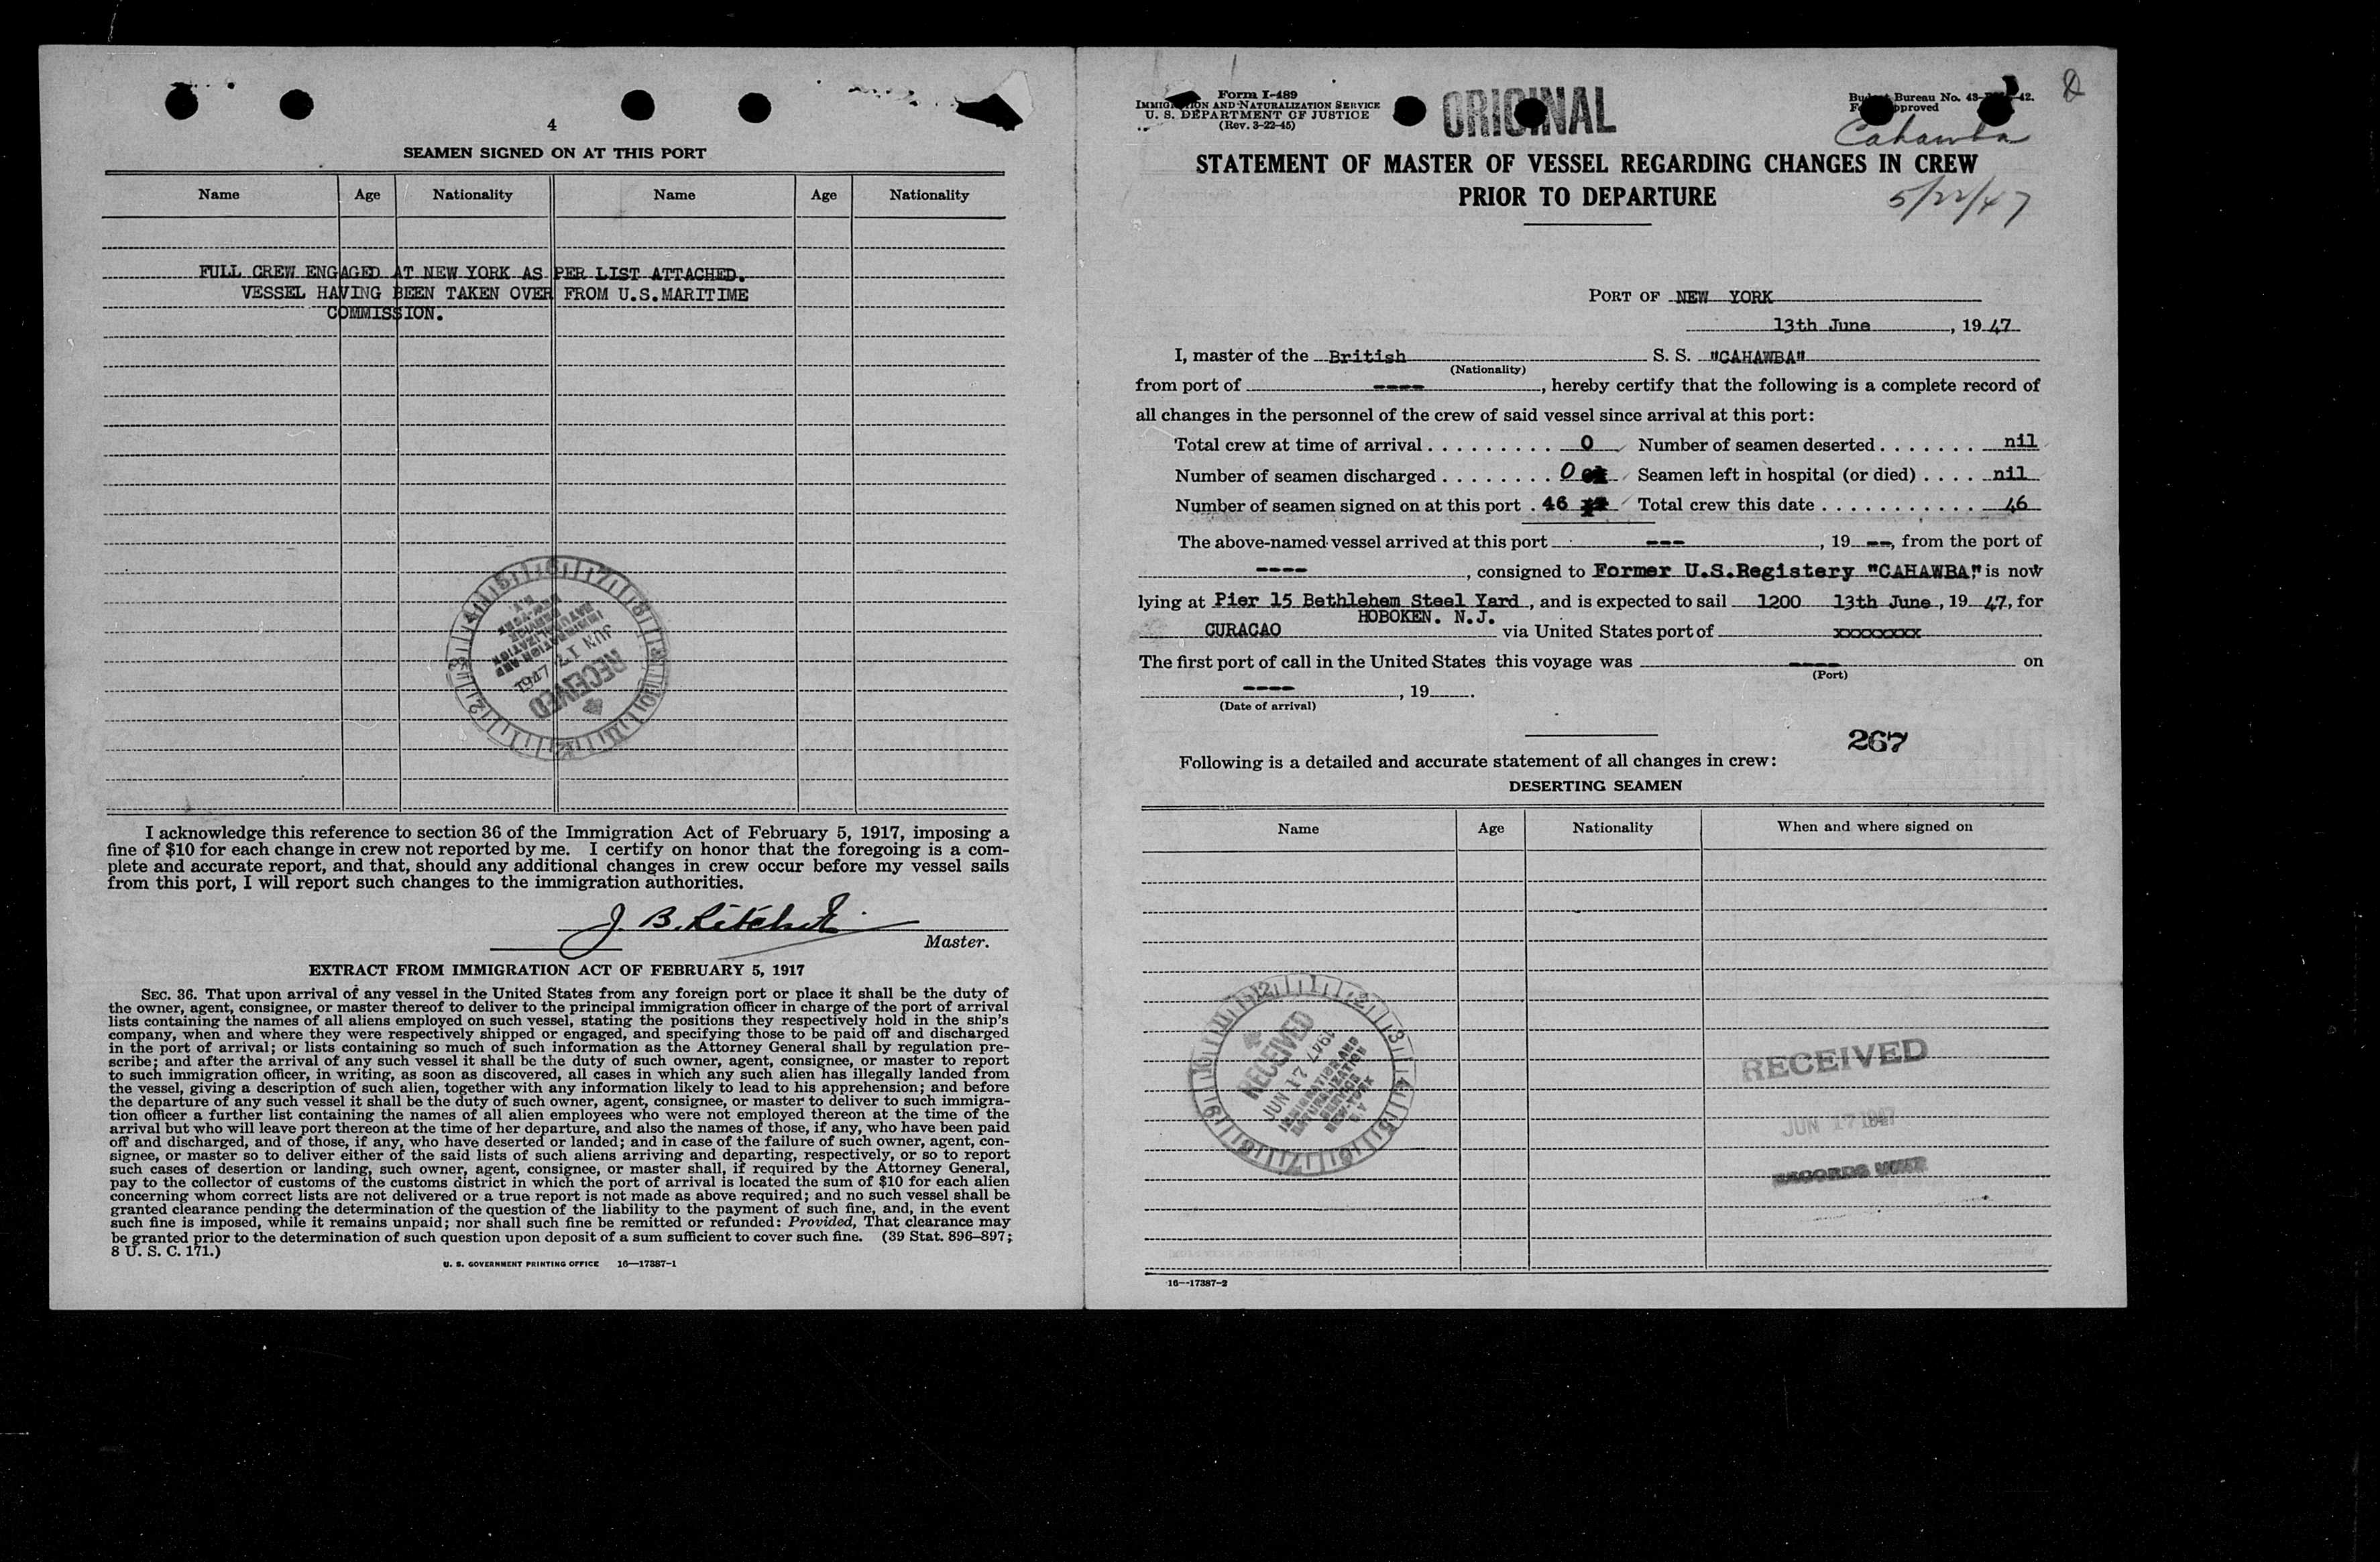 4
SEAMEN SIGNED ON AT THIS PORT
Name Age Nationality Name Age Nationality
FULL CREW ENGAGED AT NEW YORK AS PER LIST ATTACHED.
VESSEL HAVING BEEN TAKEN OVER FROM U.S.MARITIME
COMMISSION.
IMMIGRATION AND NATURALIZATION SERVICE NEW YORK N.Y.
JUN 17 1947
RECEIVED
I acknowledge this reference to section 36 of the Immigration Act of February 5, 1917, imposing a
fine of $10 for each change in crew not reported by me. I certify on honor that the foregoing is a com-
plete and accurate report, and that, should any additional changes in crew occur before my vessel sails
from this port, I will report such changes to the immigration authorities.
J. B. Ritchie
Master.
EXTRACT FROM IMMIGRATION ACT OF FEBRUARY 5, 1917
SEC. 36. That upon arrival of any vessel in the United States from any foreign port or place it shall be the duty of
the owner, agent, consignee, or master thereof to deliver to the principal immigration officer in charge of the port of arrival
lists containing the names of all aliens employed on such vessel, stating the positions they respectively hold in the ship's
company, when and where they were respectively shipped or engaged, and specifying those to be paid off and discharged
in the port of arrival; or lists containing so much of such information as the Attorney General shall by regulation pre-
scribe; and after the arrival of any such vessel it shall be the duty of such owner, agent, consignee, or master to report
to such immigration officer, in writing, as soon as discovered, all cases in which any such alien has illegally landed from
the vessel, giving a description of such alien, together with any information likely to lead to his apprehension; and before
the departure of any such vessel it shall be the duty of such owner, agent, consignee, or master to deliver to such immigra-
tion officer a further list containing the names of all alien employees who were not employed thereon at the time of the
arrival but who will leave port thereon at the time of her departure, and also the names of those, if any, who have been paid
off and discharged, and of those, if any, who have deserted or landed; and in case of the failure of such owner, agent, con-
signee, or master so to deliver either of the said lists of such aliens arriving and departing, respectively, or so to report
such cases of desertion or landing, such owner, agent, consignee, or master shall, if required by the Attorney General,
pay to the collector of customs of the customs district in which the port of arrival is located the sum of $10 for each alien
concerning whom correct lists are not delivered or a true report is not made as above required; and no such vessel shall be
granted clearance pending the determination of the question of the liability to the payment of such fine, and, in the event
such fine is imposed, while it remains unpaid; nor shall such fine be remitted or refunded: Provided, That clearance may
be granted prior to the determination of such question upon deposit of a sum sufficient to cover such fine. (39 Stat. 896–897;
8 U. S. C. 171.)
U. S. GOVERNMENT PRINTING OFFICE 16—17387-1
Form I-489
IMMIGRATION AND NATURALIZATION SERVICE
U. S. DEPARTMENT OF JUSTICE
(Rev. 3-22-45)
ORIGINAL
Budget Bureau No. 43- 42.
Approved
Cahawba
STATEMENT OF MASTER OF VESSEL REGARDING CHANGES IN CREW
PRIOR TO DEPARTURE
5/22/47
PORT OF NEW YORK
13th June, 19 47
I, master of the British S. S. "CAHAWBA"
(Nationality)
from port of ----, hereby certify that the following is a complete record of
all changes in the personnel of the crew of said vessel since arrival at this port:
Total crew at time of arrival . . . . . . . . . . 0 Number of seamen deserted . . . . . . . nil
Number of seamen discharged . . . . . . . . 0 Seamen left in hospital (or died) . . . . nil
Number of seamen signed on at this port . 46 Total crew this date . . . . . . . . . . . . 46
The above-named vessel arrived at this port ---, 19 --, from the port of
----, consigned to Former U.S.Registery "CAHAWBA," is now
lying at Pier 15 Bethlehem Steel Yard, and is expected to sail 1200 13th June, 19 47, for
HOBOKEN. N.J.
CURACAO via United States port of xxxxxxxx
The first port of call in the United States this voyage was ---- on
(Port)
----, 19
(Date of arrival)
267
Following is a detailed and accurate statement of all changes in crew:
DESERTING SEAMEN
Name Age Nationality When and where signed on
RECEIVED
JUN 17 1947
IMMIGRATION AND NATURALIZATION SERVICE NEW YORK N.Y.
RECEIVED
JUN 17 1947
RECORDS UNIT
16—17387-2